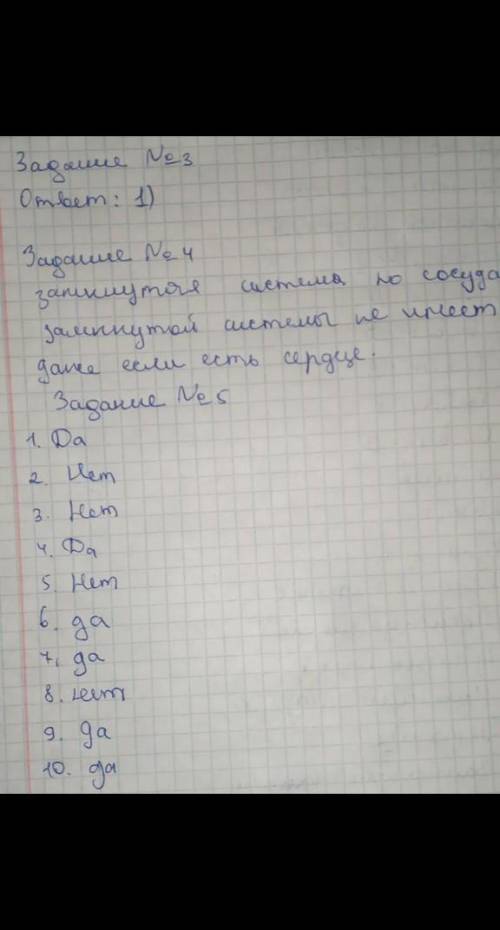 Задание №3
Ответ: 1)
Задание №4
замкнутоя система по сосуда
замкнутой системы не имеет
даже если есть сердце.
Задание №5
1. Да
2. Нет
3. Нет
4. Да
5. Нет
6. да
7. да
8. нет
9. да
10. да